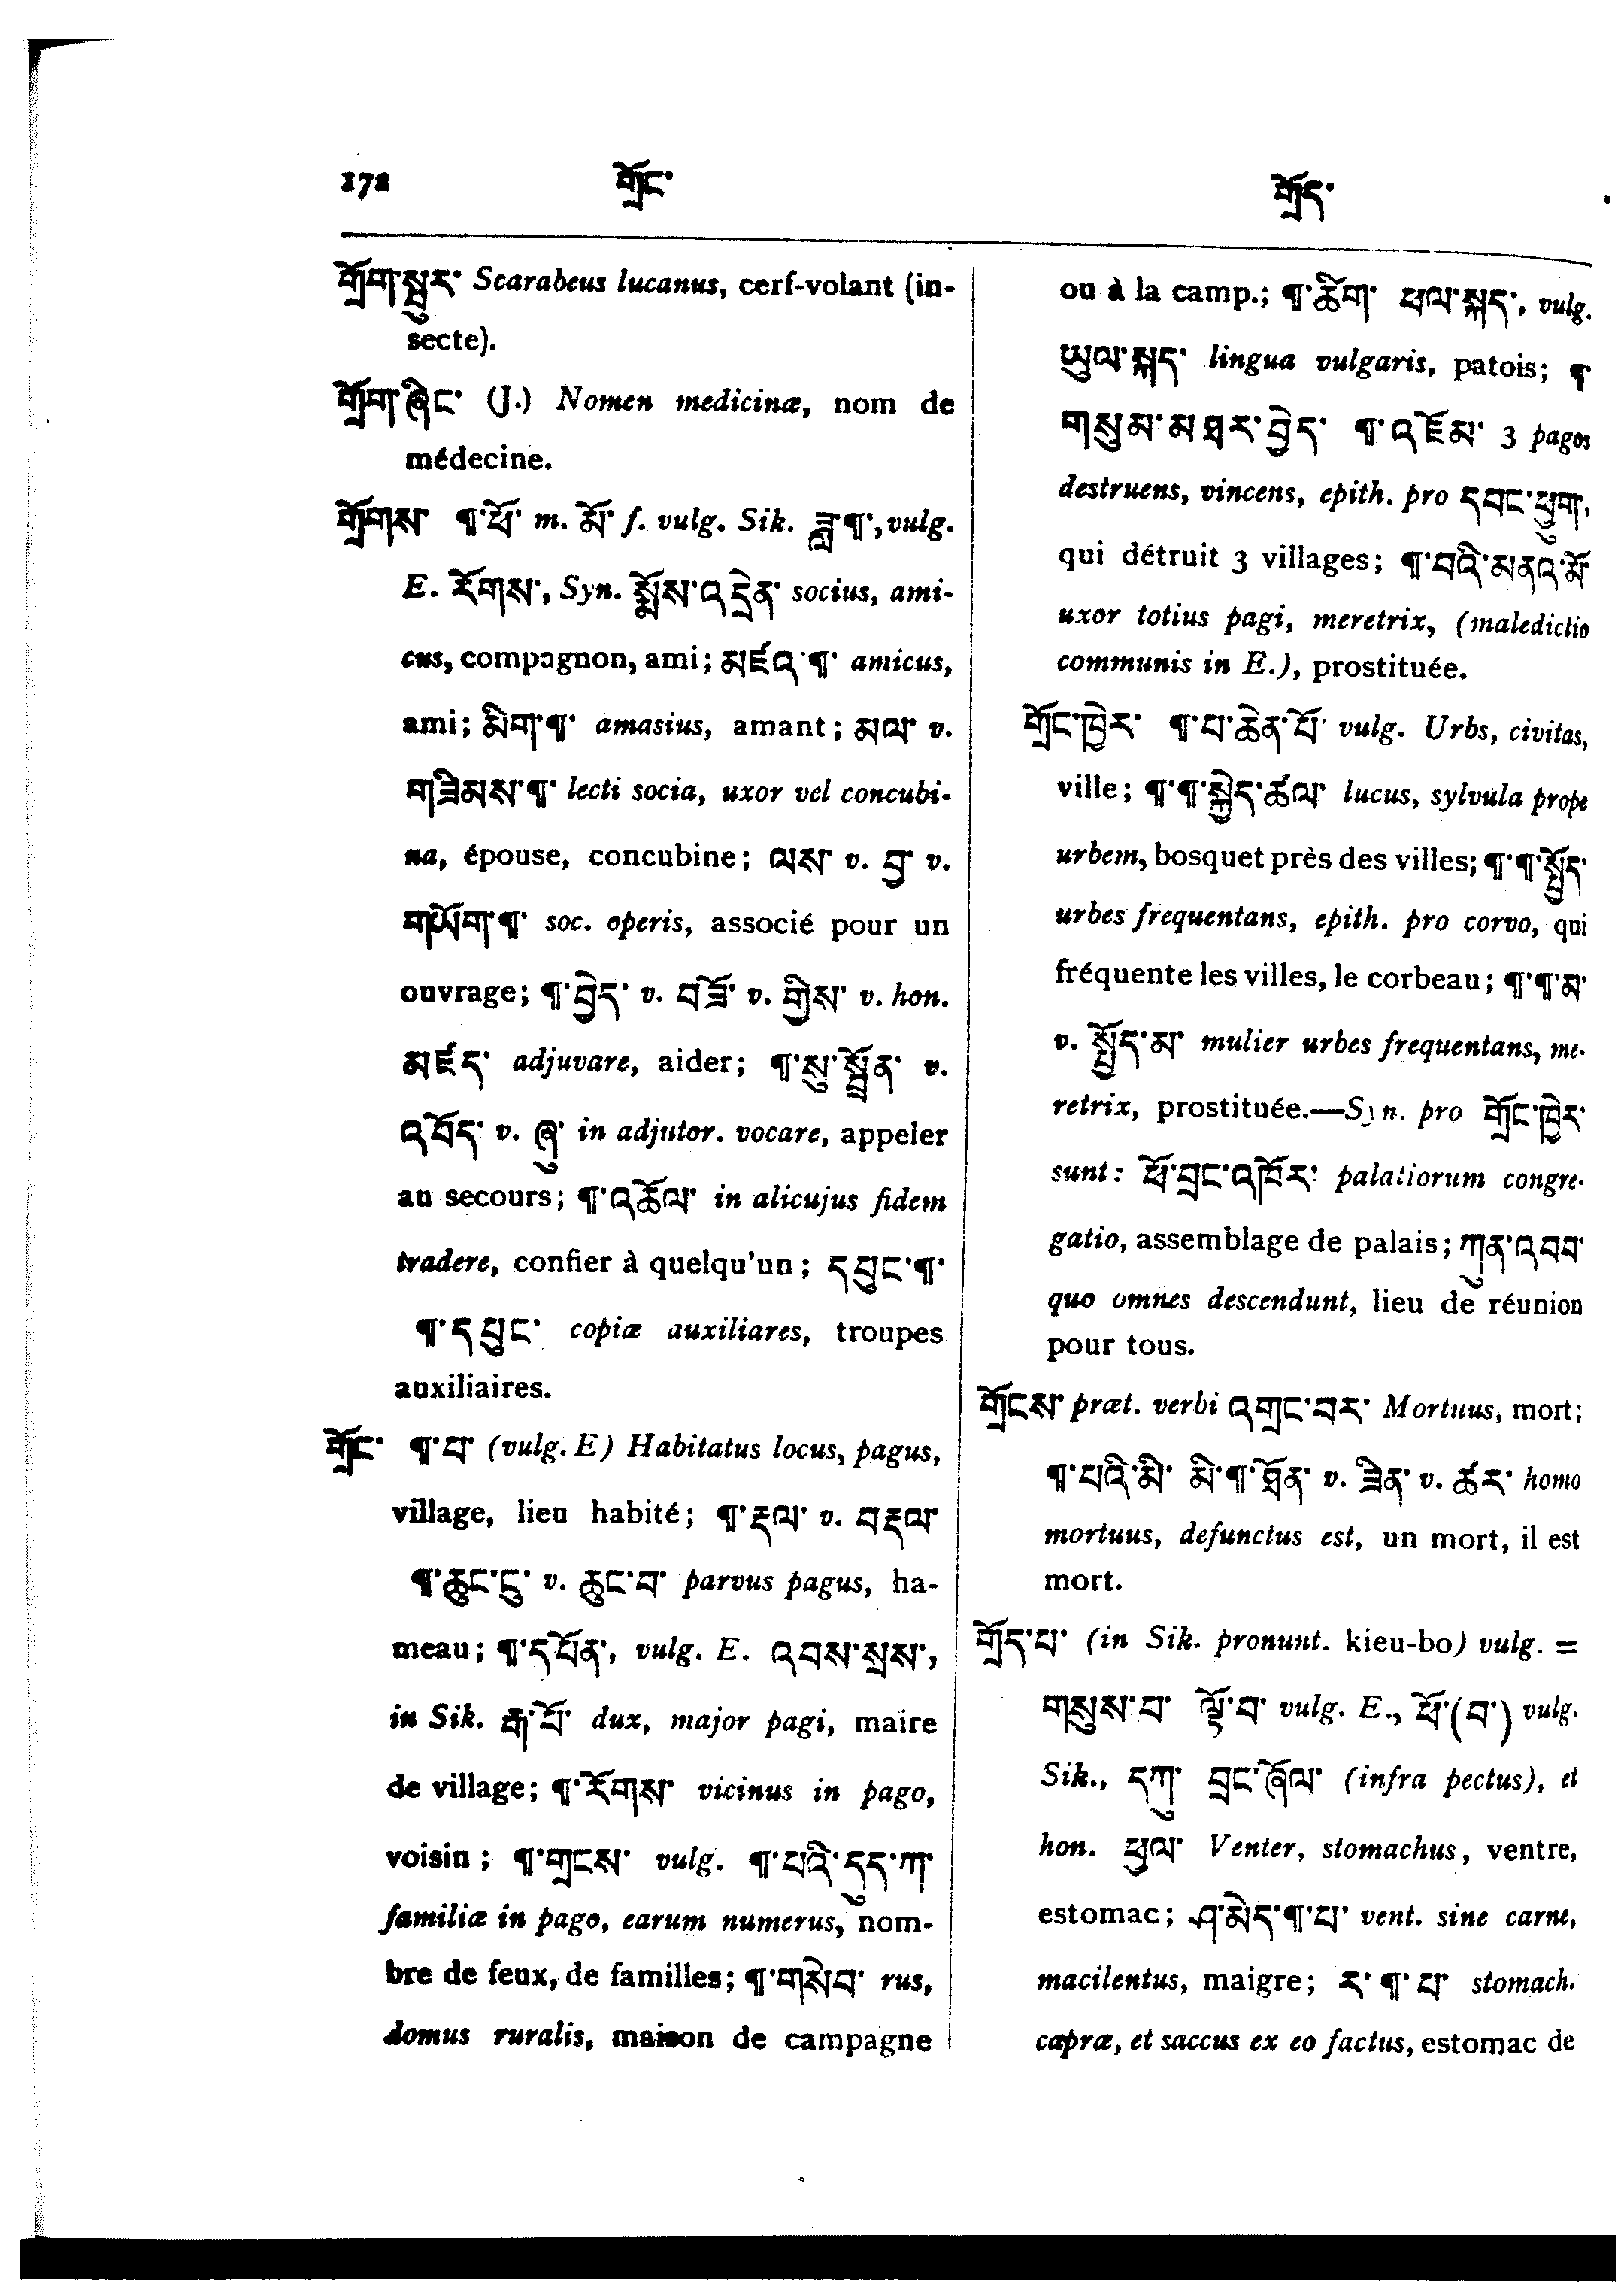 172 གྲོང་ གྲོད་
གྲོག་སྦུར་ Scarabeus lucanus, cerf-volant (in-
secte).
གྲོག་ཞིང་ (J.) Nomen medicinæ, nom de
médecine.
གྲོགས་ ¶་ཕོ་ m. མོ་ f. vulg. Sik. ཟླ་¶་, vulg.
E. རོགས་, Syn. སྨོས་འདྲེན་ socius, ami-
cus, compagnon, ami; མཛའ་¶་ amicus,
ami; མིག་¶་ amasius, amant; མལ་ v.
གཟིམས་¶་ lecti socia, uxor vel concubi-
na, épouse, concubine; ལས་ v. བྱ་ v.
གཡོག་¶་ soc. operis, associé pour un
ouvrage; ¶་བྱེད་ v. བཟོ་ v. གྱིས་ v. hon.
མཛད་ adjuvare, aider; ¶་སུ་སྦྲོན་ v.
འབོད་ v. ཞུ་ in adjutor. vocare, appeler
au secours; ¶་འཆོལ་ in alicujus fidem
tradere, confier à quelqu'un; དཔུང་¶་
¶་དཔུང་ copiæ auxiliares, troupes
auxiliaires.
གྲོང་ ¶་པ་ (vulg. E) Habitatus locus, pagus,
village, lieu habité; ¶་རྡལ་ v. བརྡལ་
¶་ཆུང་ངུ་ v. ཆུང་བ་ parvus pagus, ha-
meau; ¶་དཔོན་, vulg. E. འབས་སྲས་,
in Sik. རྒ་པོ་ dux, major pagi, maire
de village; ¶་རོགས་ vicinus in pago,
voisin; ¶་གྲངས་ vulg. ¶་པའི་དུད་ཀ་
familiæ in pago, earum numerus, nom-
bre de feux, de familles; ¶་གསེབ་ rus,
domus ruralis, maison de campagne
ou à la camp.; ¶་ཚིག་ ཕལ་སྐད་, vulg.
ཡུལ་སྐད་ lingua vulgaris, patois; ¶་
གསུམ་མཐར་བྱེད་ ¶་འཇོམ་ 3 pagos
destruens, vincens, epith. pro དབང་ཕྱུག་,
qui détruit 3 villages; ¶་བའི་མནའ་མོ་
uxor totius pagi, meretrix, (maledictio
communis in E.), prostituée.
གྲོང་ཁྱེར་ ¶་པ་ཆེན་པོ་ vulg. Urbs, civitas,
ville; ¶་¶་སྐྱེད་ཚལ་ lucus, sylvula prope
urbem, bosquet près des villes; ¶་¶་སྤྱོད་
urbes frequentans, epith. pro corvo, qui
fréquente les villes, le corbeau; ¶་¶་མ་
v. སྤྱོད་མ་ mulier urbes frequentans, me-
retrix, prostituée.—Syn. pro གྲོང་ཁྱེར་
sunt: ཕོ་བྲང་འཁོར་ palatiorum congre-
gatio, assemblage de palais; ཀུན་འབབ་
quo omnes descendunt, lieu de réunion
pour tous.
གྲོངས་ præt. verbi འགྲང་བར་ Mortuus, mort;
¶་པའི་མི་ མི་¶་ཐོན་ v. ཟིན་ v. ཚར་ homo
mortuus, defunctus est, un mort, il est
mort.
གྲོད་པ་ (in Sik. pronunt. kieu-bo) vulg. =
གསུས་པ་ ལྟོ་བ་ vulg. E., ཕོ་(བ་) vulg.
Sik., དཀུ་ བྲང་ཞོལ་ (infra pectus), et
hon. ཕུལ་ Venter, stomachus, ventre,
estomac; ཤ་མེད་¶་པ་ vent. sine carne,
macilentus, maigre; ར་¶་པ་ stomach.
capræ, et saccus ex eo factus, estomac de